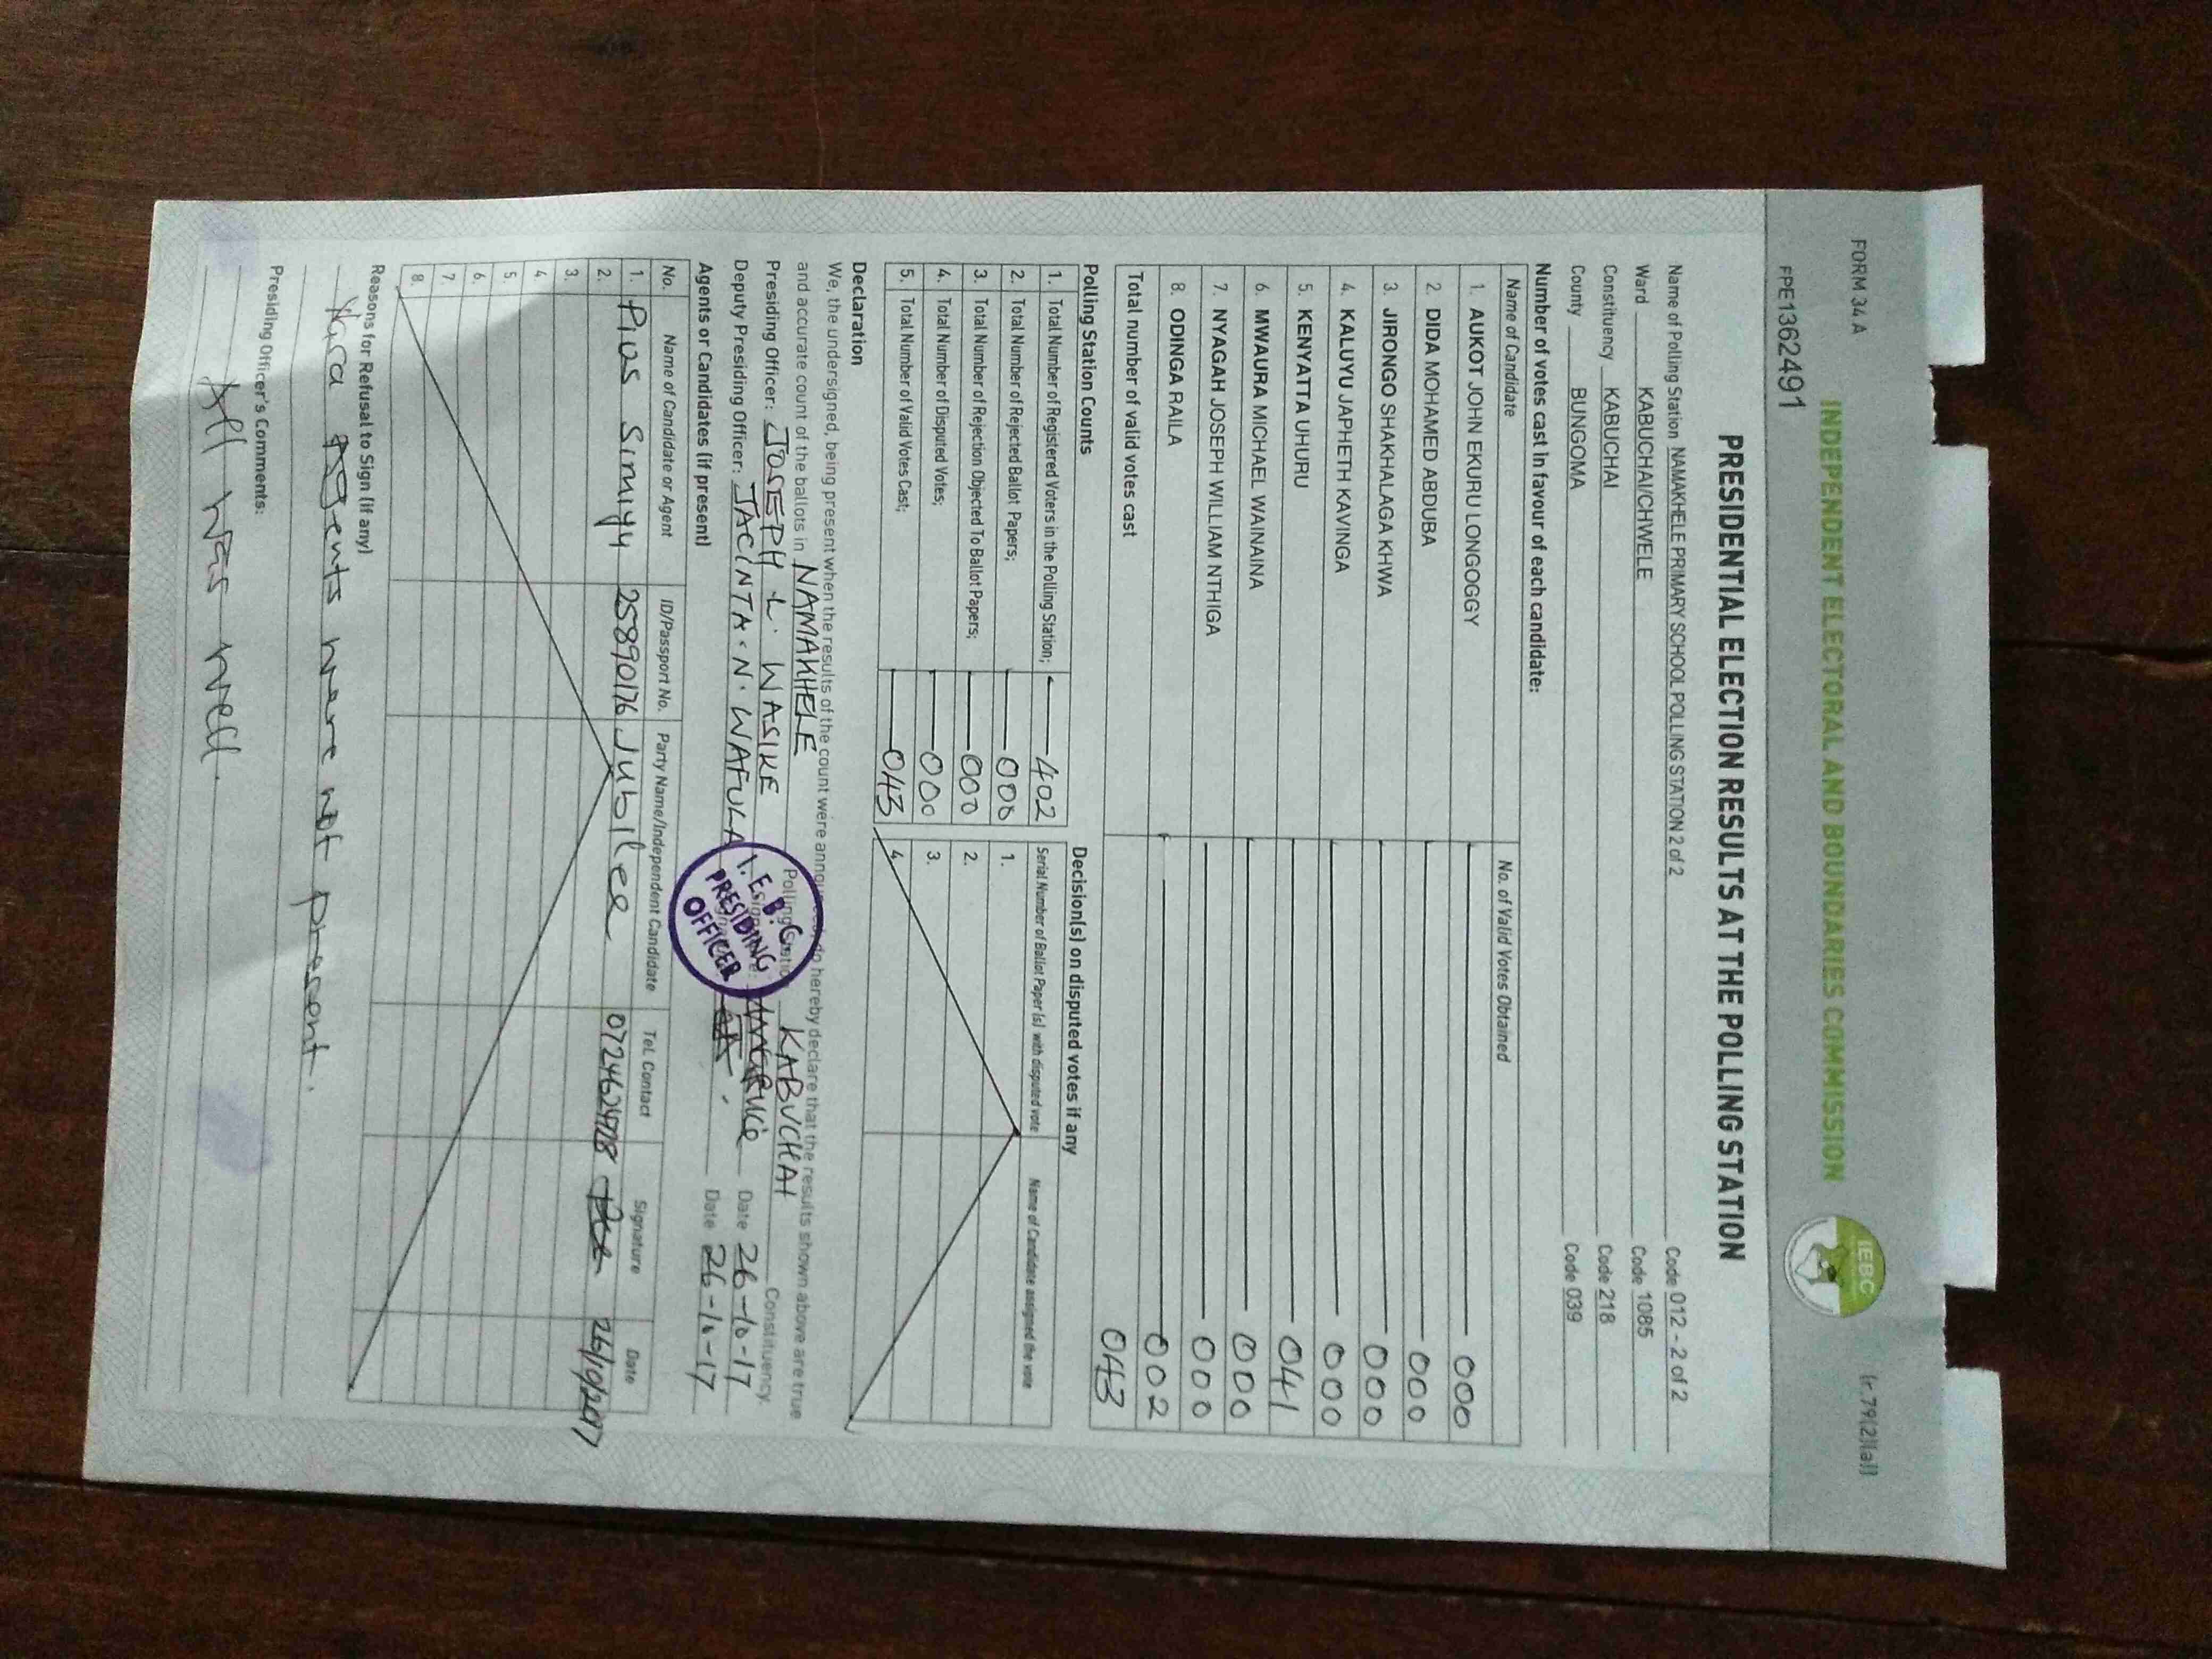 FORM 34 A
(r.79(2)(a))
INDEPENDENT ELECTORAL AND BOUNDARIES COMMISSION
IEBC
FPE1362491
PRESIDENTIAL ELECTION RESULTS AT THE POLLING STATION
Name of Polling Station NAMAKHELE PRIMARY SCHOOL POLLING STATION 2 of 2 Code 012 - 2 of 2
Ward KABUCHAI/CHWELE Code 1085
Constituency KABUCHAI Code 218
County BUNGOMA Code 039
Number of votes cast in favour of each candidate:
Name of Candidate No. of Valid Votes Obtained
1. AUKOT JOHN EKURU LONGOGGY 000
2. DIDA MOHAMED ABDUBA 000
3. JIRONGO SHAKHALAGA KHWA 000
4. KALUYU JAPHETH KAVINGA 000
5. KENYATTA UHURU 041
6. MWAURA MICHAEL WAINAINA 000
7. NYAGAH JOSEPH WILLIAM NTHIGA 000
8. ODINGA RAILA 002
Total number of valid votes cast 043
Polling Station Counts
1. Total Number of Registered Voters in the Polling Station; 402
2. Total Number of Rejected Ballot Papers; 000
3. Total Number of Rejection Objected To Ballot Papers; 000
4. Total Number of Disputed Votes; 000
5. Total Number of Valid Votes Cast; 043
Decision(s) on disputed votes if any
Serial Number of Ballot Paper (s) with disputed vote Name of Candidate assigned the vote
1.
2.
3.
4.
Declaration
We, the undersigned, being present when the results of the count were announced, do hereby declare that the results shown above are true
and accurate count of the ballots in NAMAKHELE Polling Station KABUCHAI Constituency.
Presiding Officer: JOSEPH L. WASIKE Date 26-10-17
Deputy Presiding Officer: JACINTA.N. WAFULA Date 26-10-17
I.E.B.C
PRESIDING
OFFICER
Agents or Candidates (if present)
No. Name of Candidate or Agent ID/Passport No. Party Name/Independent Candidate Tel. Contact Signature Date
1. Pius Simiyu 25890176 Jubilee 0724624728 26/10/2017
2.
3.
4.
5.
6.
7.
8.
Reasons for Refusal to Sign (if any)
Nasa agents were not present.
Presiding Officer's Comments:
All was well.